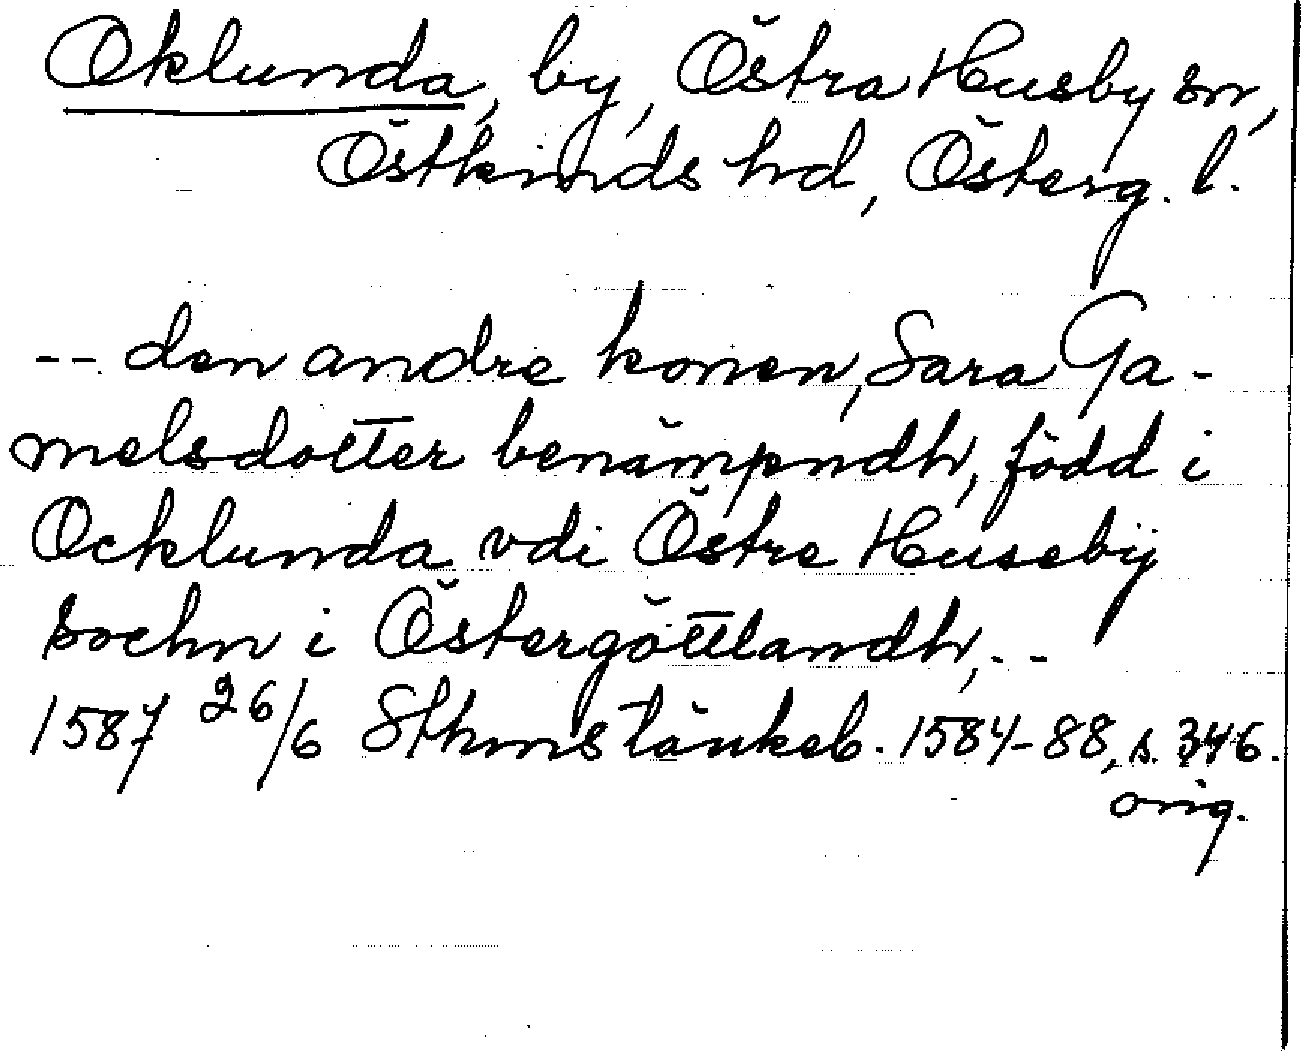 Oklunda, by, Östra Husby sn,
Östkinds hd, Österg. l.
-- den andre konen, Sara Ga-
melsdotter benämpndh, född i
Ocklunda vdi Östre Husebÿ
sochn i Östergöttlandh, --
1587 26/6 Sthms tänkeb. 1584-88, s. 346.
orig.